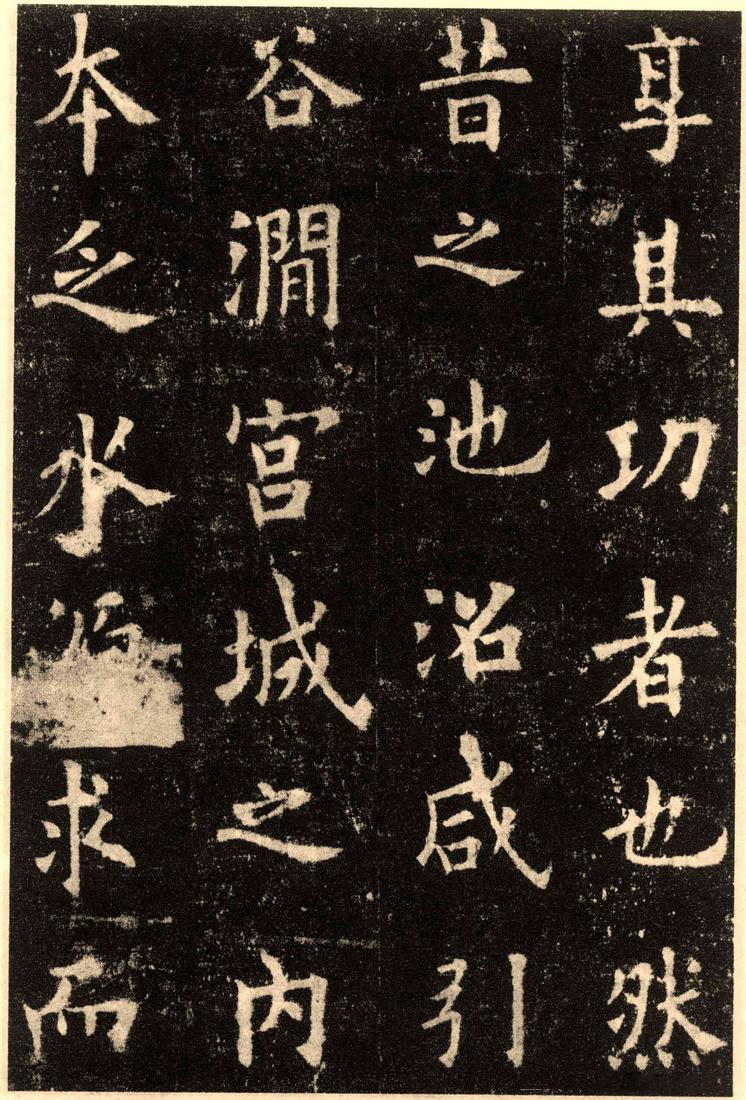 享其功者也然
昔之池沼咸引
谷澗宮城之内
本乏水求而